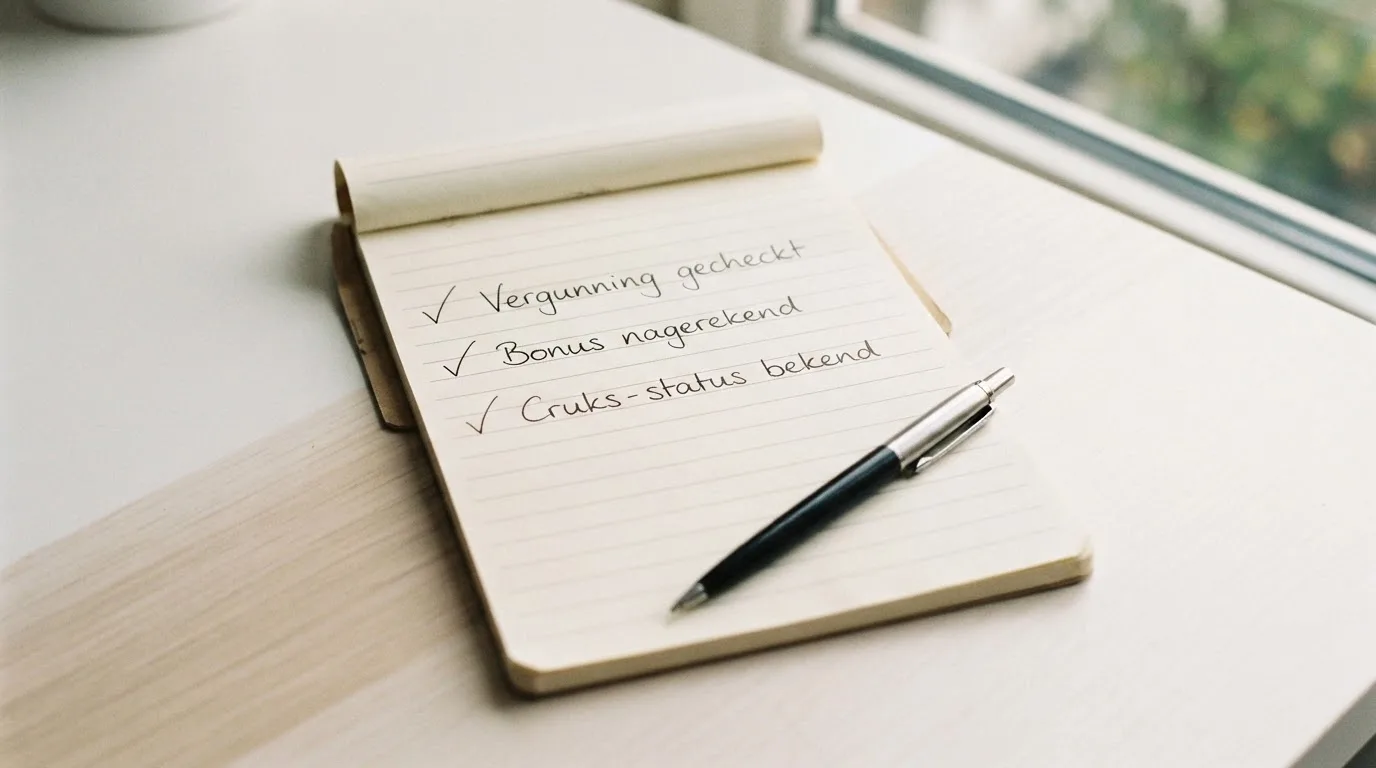 ✓ Vergunning gecheckt
✓ Bonus nagerekend
✓ Cruks-status bekend